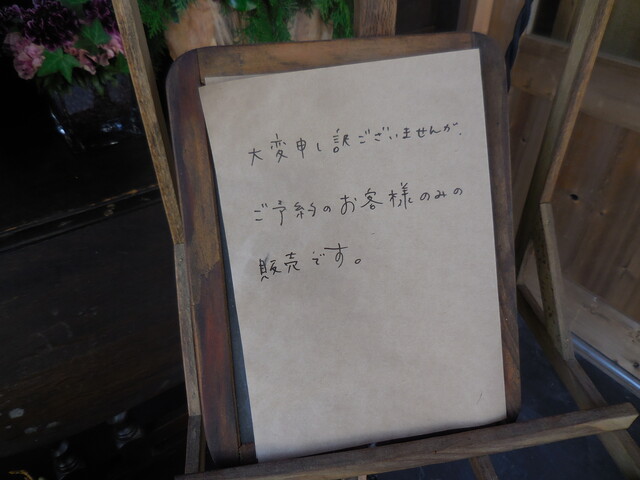 大変申し訳ございませんが、
ご予約のお客様のみの
販売です。